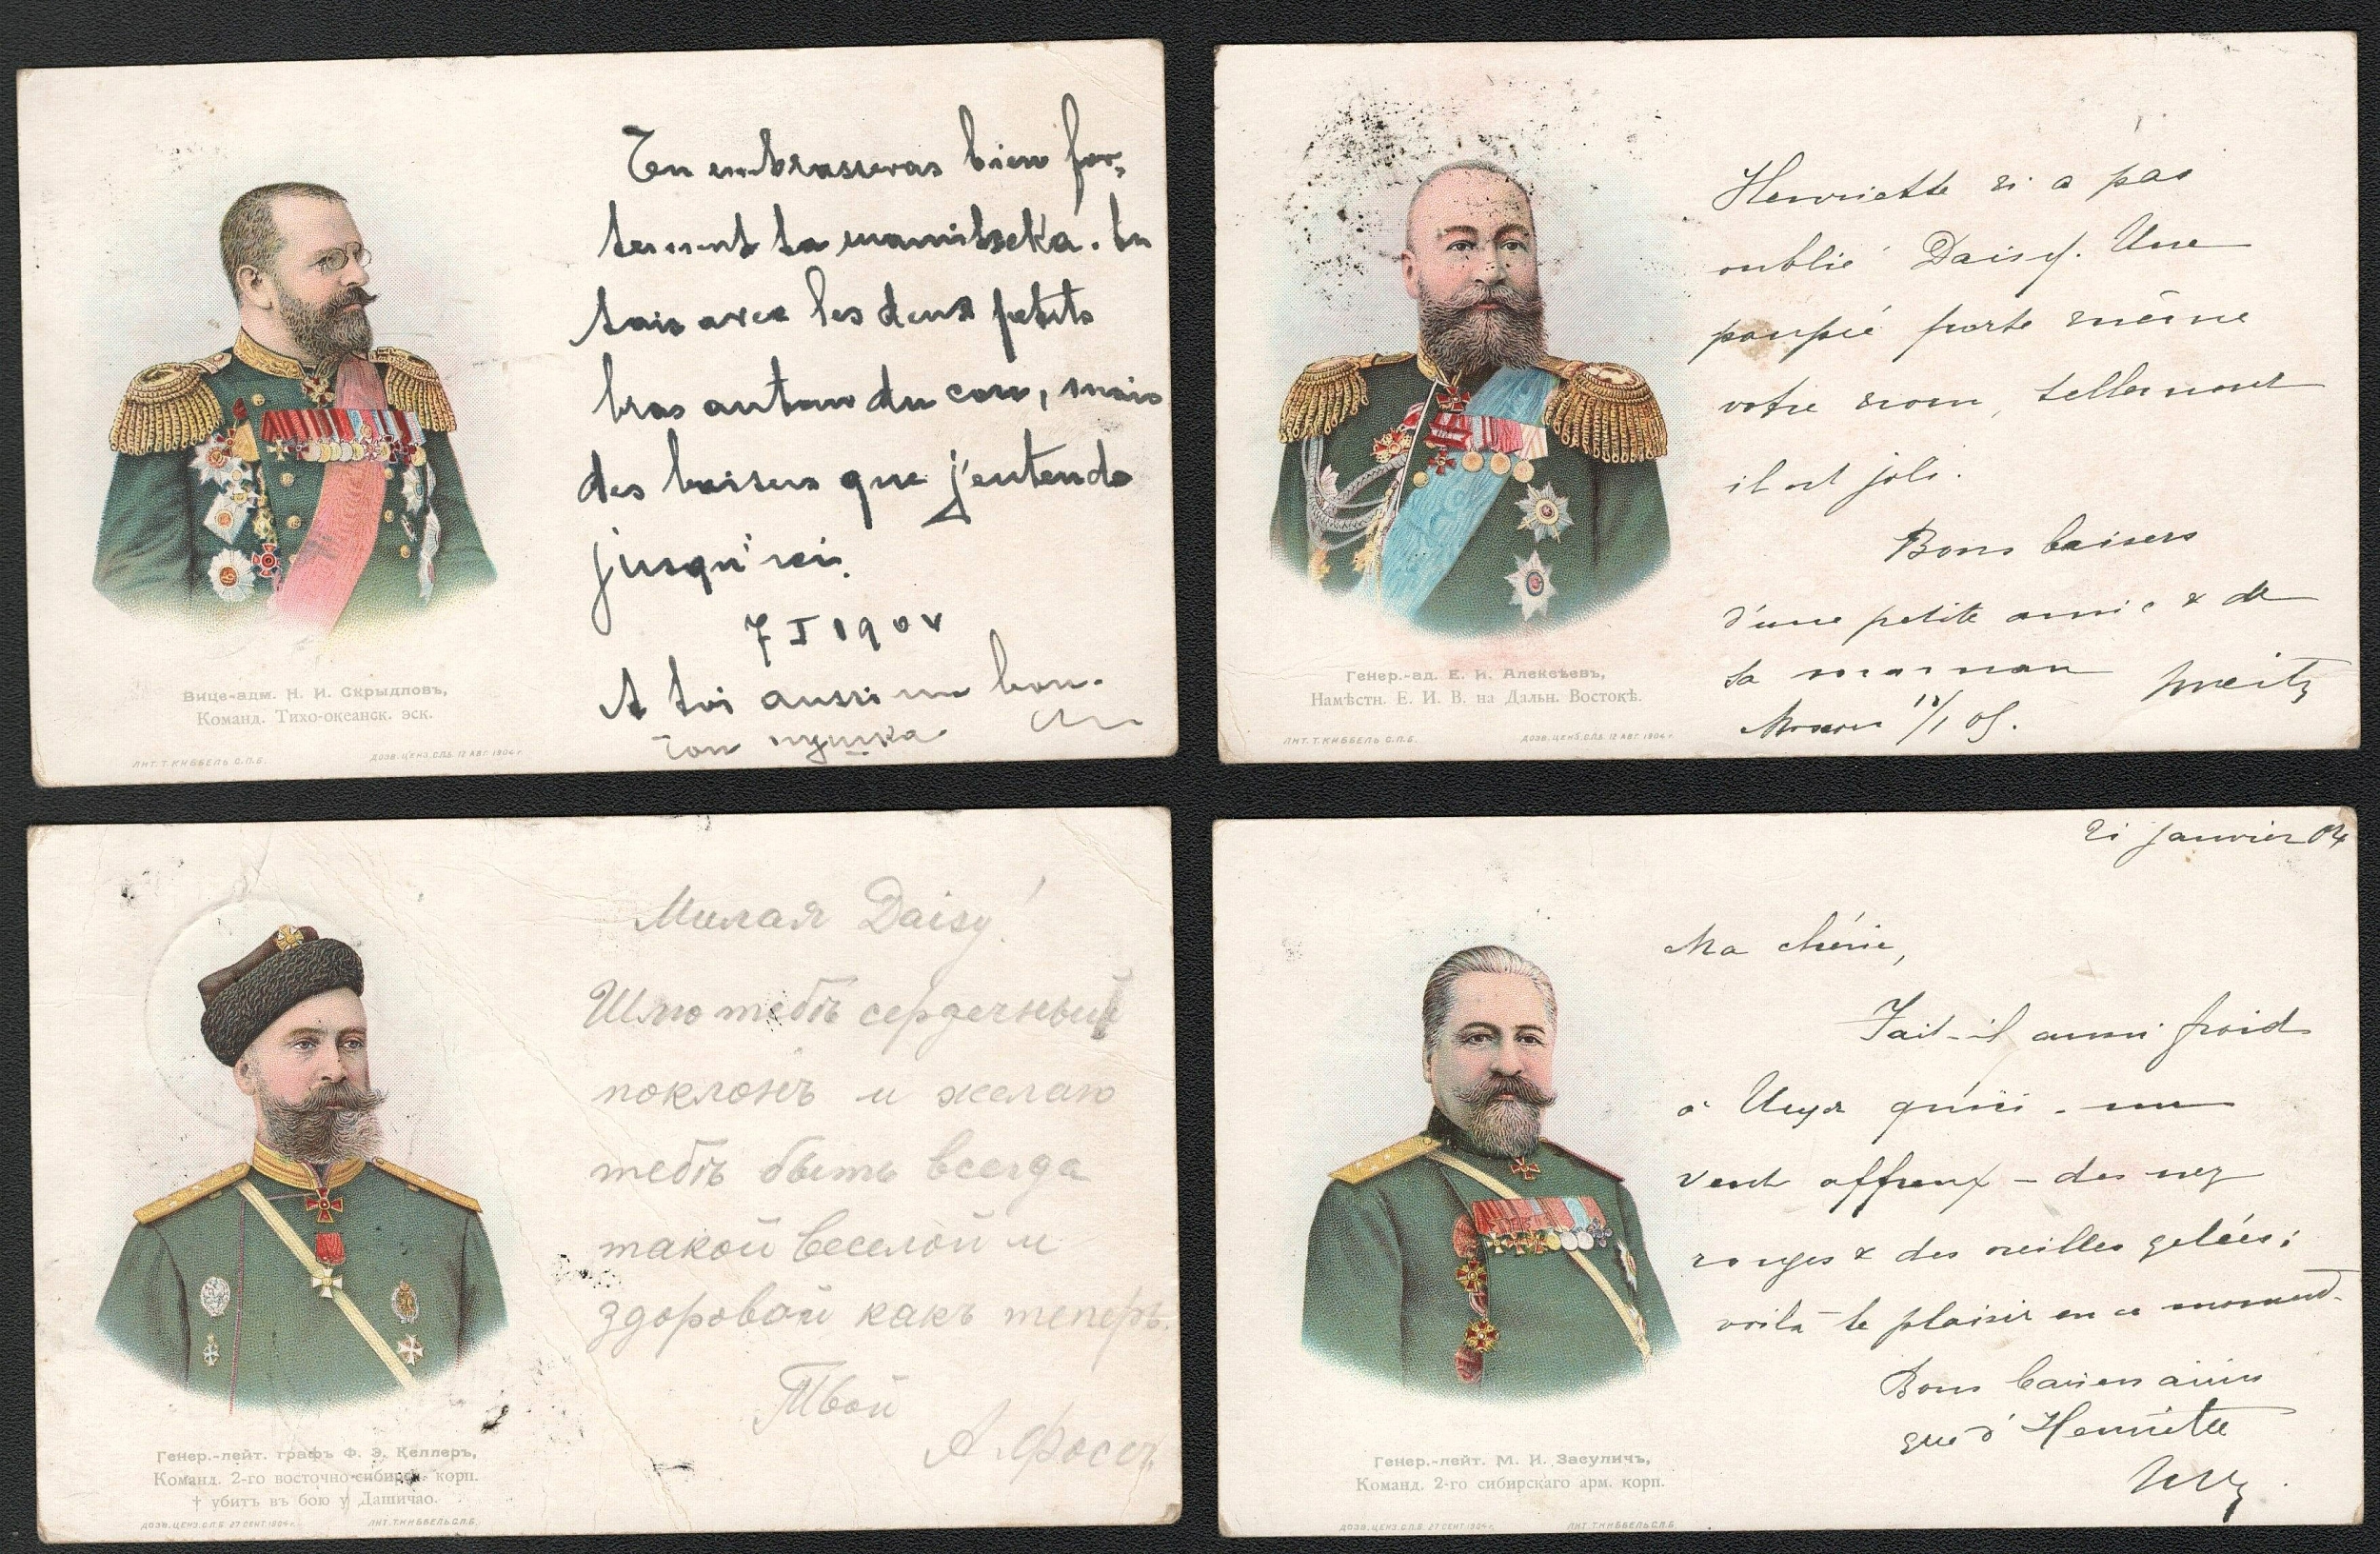 Tu embrasseras bien for-
tement ta mamitschka. Tu
sais avec les deux petits
bras autour du cou, mais
des baisers que j'entende
jusqu'ici.
7 I 190
A toi aussi un bon.
Ton пушка
Вице-адм. Н. И. Скрыдловъ,
Команд. Тихо-океанск. эск.
ЛИТ. Т. КИББЕЛЬ С.П.Б.
ДОЗВ. ЦЕНЗ. СПБ. 12 АВГ. 1904 г.
Henriette n'a pas
oublié Daisy. Une
poupée porte même
votre nom, tellement
il est joli.
Bons baisers
d'une petite amie & de
sa maman
Moscou 1/05.
Генер.-ад. Е. И. Алексѣевъ,
Намѣстн. Е. И. В. на Дальн. Востокѣ.
ЛИТ. Т. КИББЕЛЬ С.П.Б.
ДОЗВ. ЦЕНЗ. СПБ. 12 АВГ. 1904 г.
Милая Daisy!
Шлю тебѣ сердечный
поклонъ и желаю
тебѣ быть всегда
такой веселой и
здоровой какъ теперь.
Твой
А.
Генер.-лейт. графъ Ф. Э. Келлеръ,
Команд. 2-го восточно-сибирск. корп.
† убитъ въ бою у Дашичао.
ДОЗВ. ЦЕНЗ. С.П.Б. 27 СЕНТ. 1904 г.
ЛИТ. Т. КИББЕЛЬ С.П.Б.
21 janvier 04
Ma chérie,
Fait-il aussi froid
à qu'ici - un
vent affreux - des nez
rouges & des oreilles gelées;
voilà le plaisir en ce moment.
Bons baisers ainsi
que d'Henriette
Генер.-лейт. М. И. Засуличъ,
Команд. 2-го сибирскаго арм. корп.
ДОЗВ. ЦЕНЗ. С.П.Б. 27 СЕНТ. 1904 г.
ЛИТ. Т. КИББЕЛЬ С.П.Б.